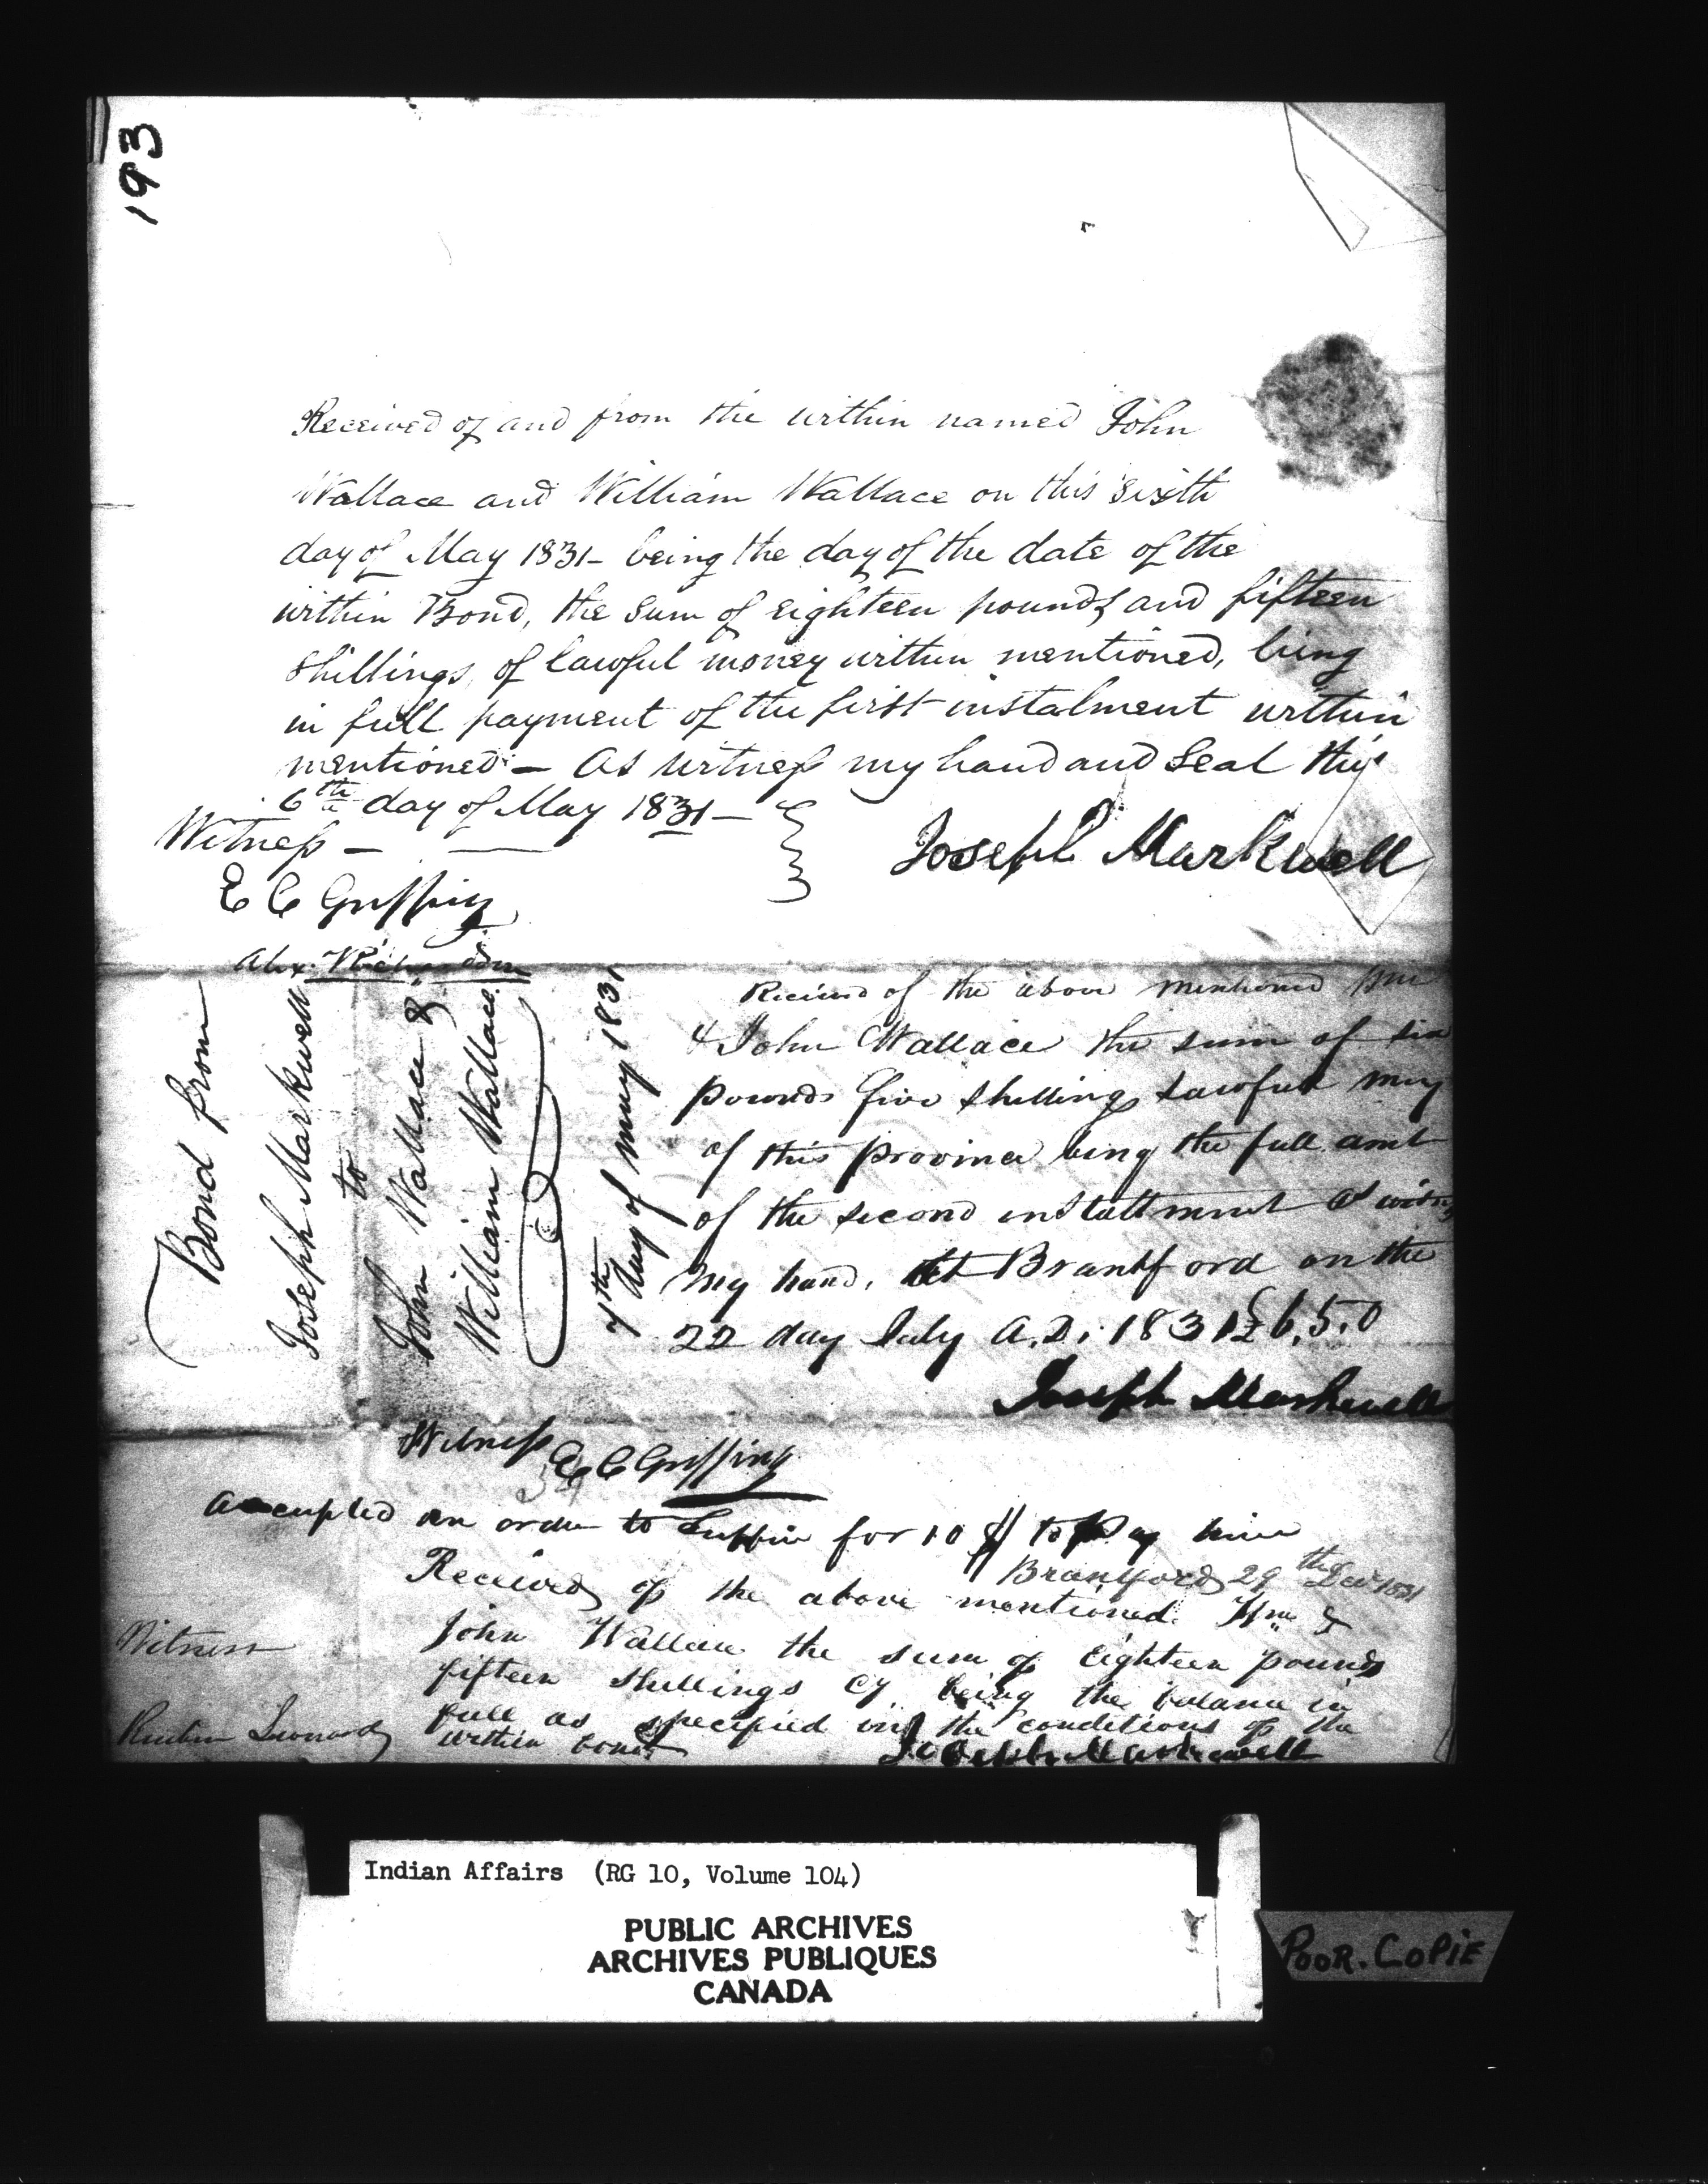 193
Received of and from the within named John
Wallace and William Wallace on this sixth
day of May 1831 - being the day of the date of the
within Bond, the sum of eighteen pounds and fifteen
shillings of lawful money within mentioned, being
in full payment of the first instalment within
mentioned - As witness my hand and Seal this
6th day of May 1831 -
Witness -
Joseph Markwell
E C Griffing
Alex. Richardson
Bond from
Joseph Markwell
to
John Wallace &
William Wallace
7th day of may 1831
Received of the above mentioned Wm
& John Wallace the sum of six
pounds five shillings lawful
of this province being the full amt
of the second installment As witness
my hand. At Brantford on the
22 day July A.D. 1831 £6.5.0
Joseph Markwell
Witness E C Griffing
accepted an order to for 10 $ to Pay him
Brantford 29th Dec 1831
Received of the above mentioned Wm &
John Wallace the sum of Eighteen pounds
fifteen shillings Cy. being the balance in
full as specified in the conditions of the
within bond
Joseph Markwell
Witness
Reuben Leonard
Indian Affairs (RG 10, Volume 104)
PUBLIC ARCHIVES
ARCHIVES PUBLIQUES
CANADA
POOR. COPIE